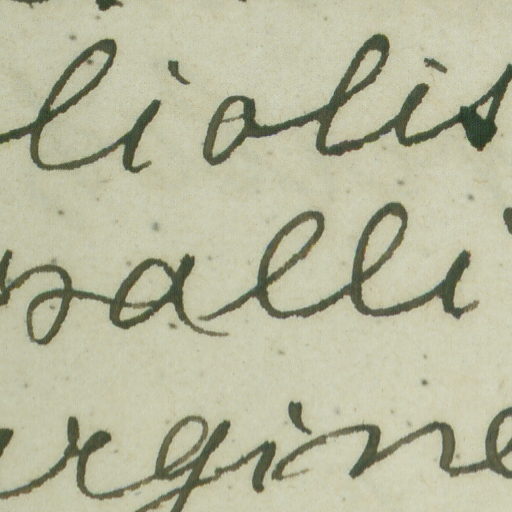 liolis
valli
rgine